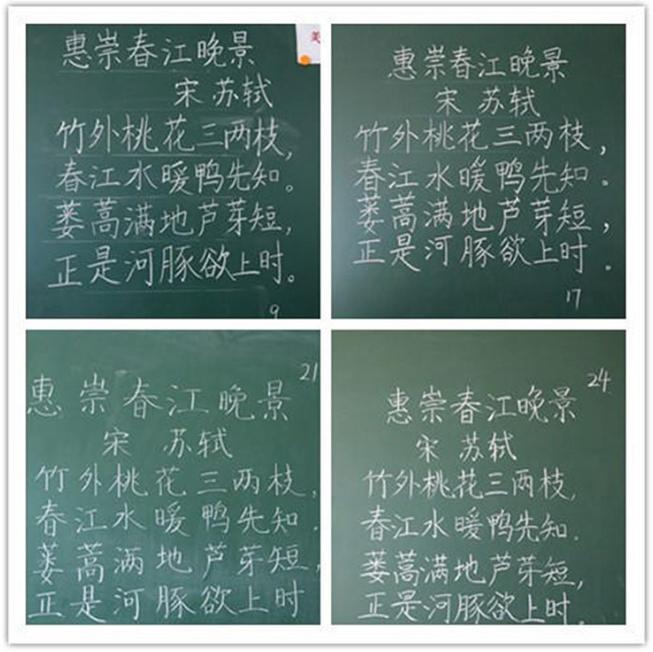 惠崇春江晚景
宋 苏轼
竹外桃花三两枝，
春江水暖鸭先知。
蒌蒿满地芦芽短，
正是河豚欲上时。
9
美
惠崇春江晚景
宋 苏轼
竹外桃花三两枝，
春江水暖鸭先知。
蒌蒿满地芦芽短，
正是河豚欲上时。
17
21
惠崇春江晚景
宋 苏轼
竹外桃花三两枝，
春江水暖鸭先知.
蒌蒿满地芦芽短，
正是河豚欲上时
24
惠崇春江晚景
宋 苏轼
竹外桃花三两枝，
春江水暖鸭先知.
蒌蒿满地芦芽短，
正是河豚欲上时.